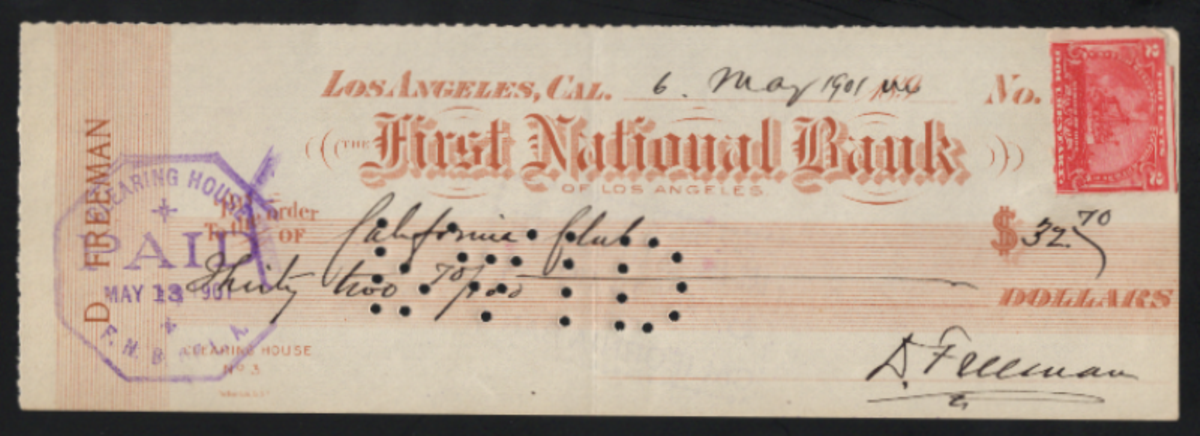 LOS ANGELES, CAL. 6. May 1901 189 No.
THE First National Bank
OF LOS ANGELES.
D FREEMAN
To the order OF California Club $32.70
Thirty two 70/100 DOLLARS
CLEARING HOUSE
PAID
MAY 13 1901
F. N. B.
CLEARING HOUSE
No 3
D. Freeman
2 2